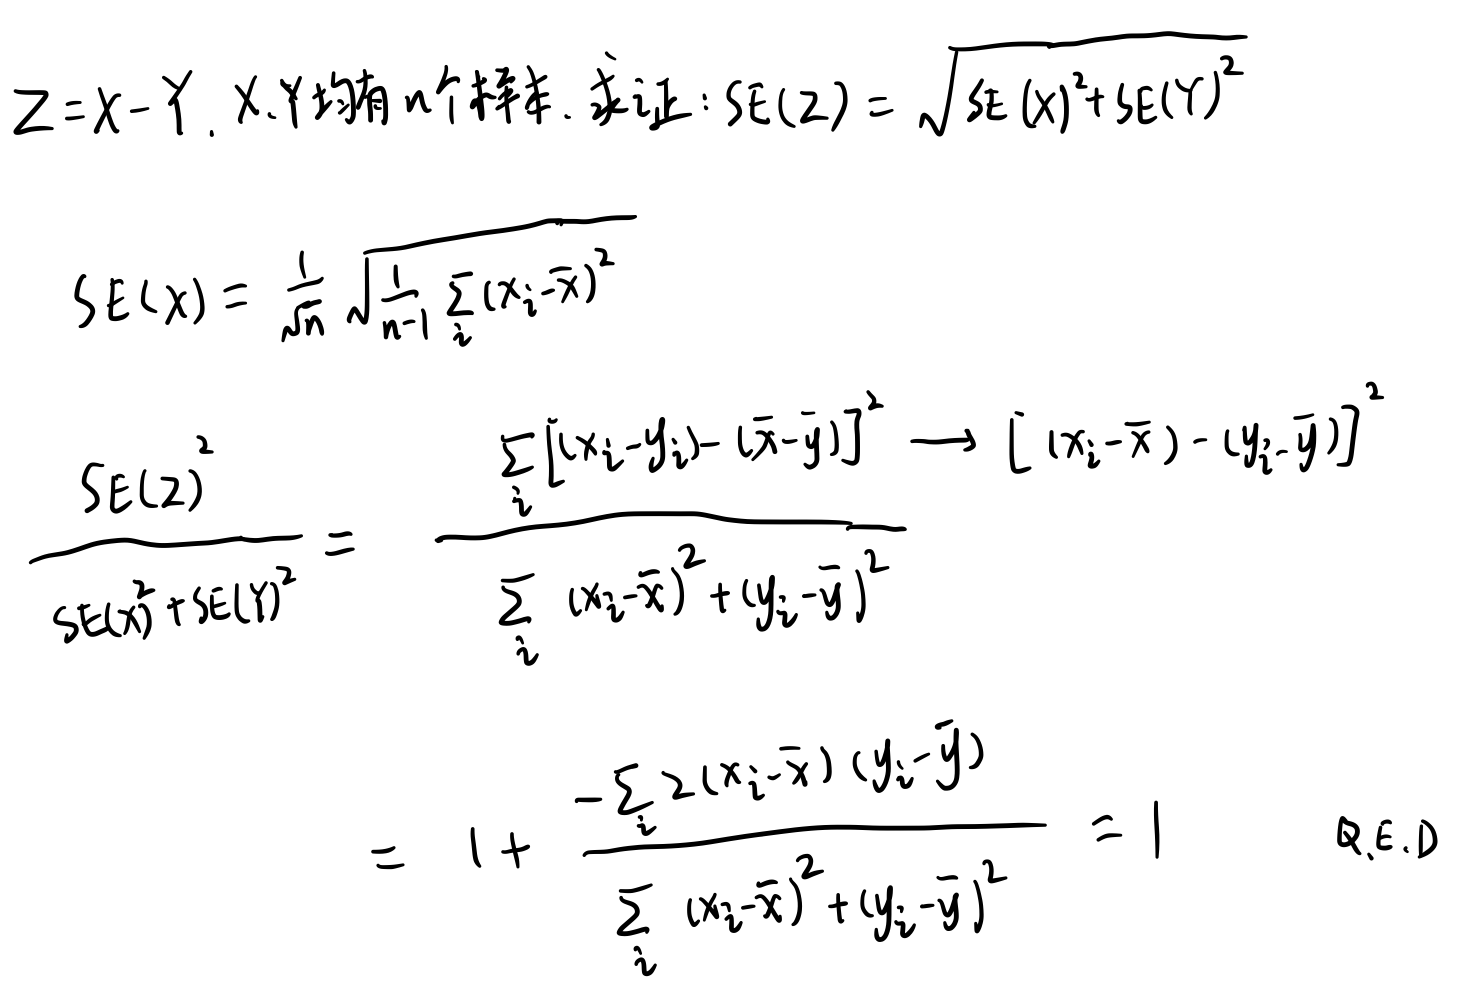 Z=X-Y. X、Y均有n个样本. 求证: SE(Z) = √(SE(X)²+SE(Y)²)
SE(X) = 1/√n √(1/(n-1) Σ_i (x_i-x̄)²)
SE(Z)²/(SE(X)²+SE(Y)²) = Σ_i[(x_i-y_i)-(x̄-ȳ)]² / Σ_i (x_i-x̄)²+(y_i-ȳ)² → [(x_i-x̄)-(y_i-ȳ)]²
= 1+ (-Σ_i 2(x_i-x̄)(y_i-ȳ)) / (Σ_i (x_i-x̄)²+(y_i-ȳ)²) = 1 Q.E.D